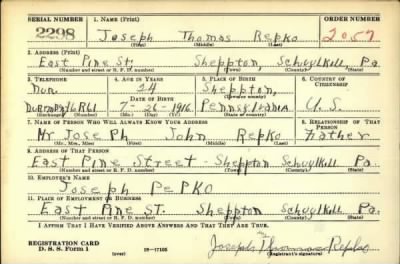 SERIAL NUMBER 1. NAME (Print) ORDER NUMBER
2298 Joseph Thomas Repko 2057
(First) (Middle) (Last)
2. ADDRESS (Print)
East Pine St. Sheppton, Schuylkill, Pa.
(Number and street or R. F. D. number) (Town) (County) (State)
3. TELEPHONE 4. AGE IN YEARS 5. PLACE OF BIRTH 6. COUNTRY OF CITIZENSHIP
24 Sheppton,
7-26-1916 Pennsylvania U. S.
DATE OF BIRTH
(Exchange) (Number) (Mo.) (Day) (Yr.) (State or country)
7. NAME OF PERSON WHO WILL ALWAYS KNOW YOUR ADDRESS 8. RELATIONSHIP OF THAT PERSON
Mr Joseph John Repko Father
(Mr., Mrs., Miss) (First) (Middle) (Last)
9. ADDRESS OF THAT PERSON
East Pine Street - Sheppton Schuylkill Pa.
(Number and street or R. F. D. number) (Town) (County) (State)
10. EMPLOYER'S NAME
Joseph Repko
11. PLACE OF EMPLOYMENT OR BUSINESS
East Pine St. Sheppton Schuylkill Pa.
(Number and street or R. F. D. number) (Town) (County) (State)
I AFFIRM THAT I HAVE VERIFIED ABOVE ANSWERS AND THAT THEY ARE TRUE.
REGISTRATION CARD
D. S. S. Form 1 16—17105 Joseph Thomas Repko
(over) (Registrant's signature)